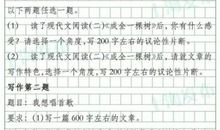 以下两题任选一题。
(1) 读了现代文阅读(二)《成全一棵树》后,你有什么感
受?请选择一个角度,写200字左右的议论性片断。
(2) 读了现代文阅读(二)《成全一棵树》后,请就文章的
写作特色,选择一个角度,写200字左右的议论性片断。
写作第二题
题目:我想唱首歌
要求:(1)写一篇600字左右的文章。